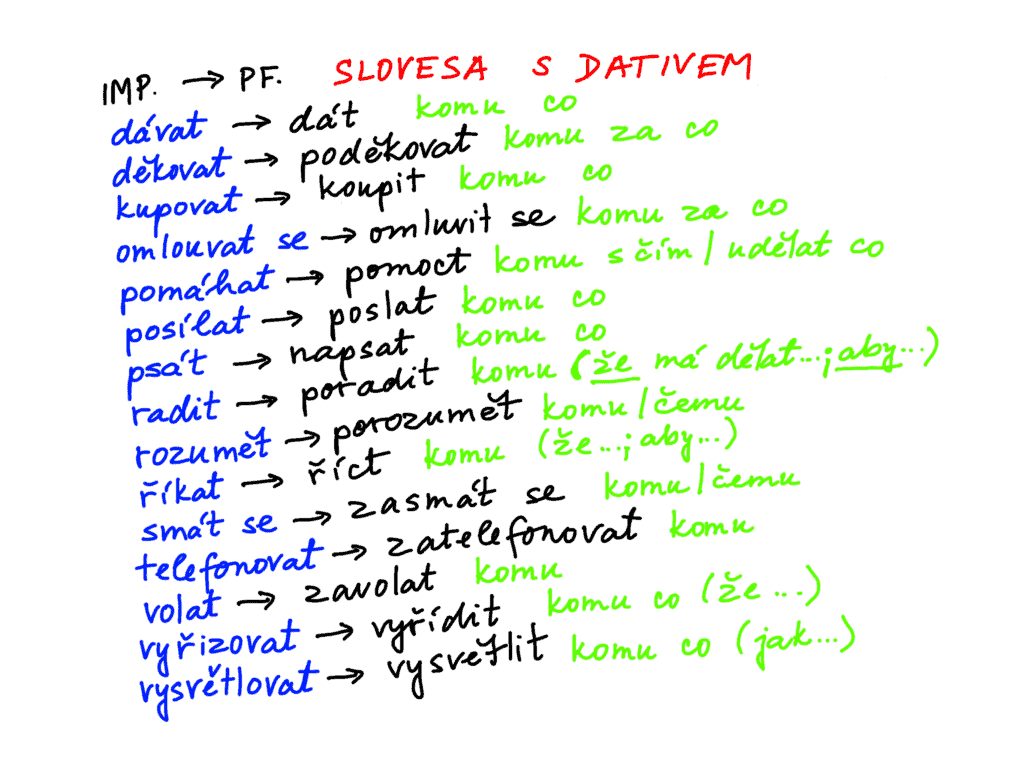 IMP. → PF. SLOVESA S DATIVEM
dávat → dát komu co
děkovat → poděkovat komu za co
kupovat → koupit komu co
omlouvat se → omluvit se komu za co
pomáhat → pomoct komu s čím / udělat co
posílat → poslat komu co
psát → napsat komu co
radit → poradit komu (že má dělat...; aby...)
rozumět → porozumět komu / čemu
říkat → říct komu (že...; aby...)
smát se → zasmát se komu / čemu
telefonovat → zatelefonovat komu
volat → zavolat komu
vyřizovat → vyřídit komu co (že...)
vysvětlovat → vysvětlit komu co (jak...)